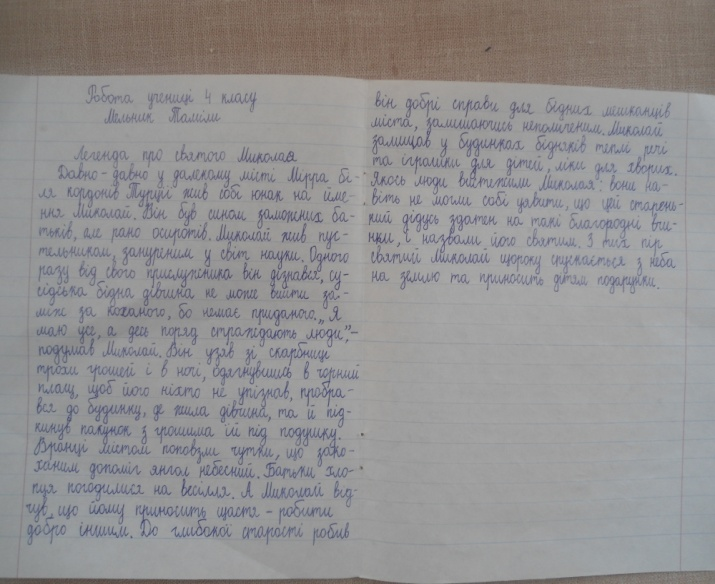 Робота учениці 4 класу
Мельник Таміли
Легенда про святого Миколая
Давно-давно у далекому місті Мірра бі-
ля кордонів Турції жив собі юнак на ймен-
ня Миколай. Він був сином заможних ба-
тьків, але рано осиротів. Миколай жив пус-
тельником, зануреним у світ науки. Одного
разу від свого прислужника він дізнався, су-
сідська бідна дівчина не може вийти за-
між за коханого, бо немає приданого. „Я
маю усе, а десь поряд страждають люди”,-
подумав Миколай. Він узяв зі скарбниці
трохи грошей і в ночі, одягнувшись в чорний
плащ, щоб його ніхто не упізнав, пробра-
вся до будинку, де жила дівчина, та й під-
кинув пакунок з грошима їй під подушку.
Вранці містом поповзли чутки, що зако-
ханим допоміг янгол небесний. Батьки хло-
пця погодилися на весілля. А Миколай від-
чув, що йому приносить щастя - робити
добро іншим. До глибокої старості робив
він добрі справи для бідних мешканців
міста, залишаючись непоміченим. Миколай
залишав у будинках бідняків теплі речі
та іграшки для дітей, ліки для хворих.
Якось люди вистежили Миколая: вони на-
віть не могли собі уявити, що цей старень-
кий дідусь здатен на такі благородні вчи-
нки, і назвали його святим. З тих пір
святий Миколай щороку спускається з неба
на землю та приносить дітям подарунки.